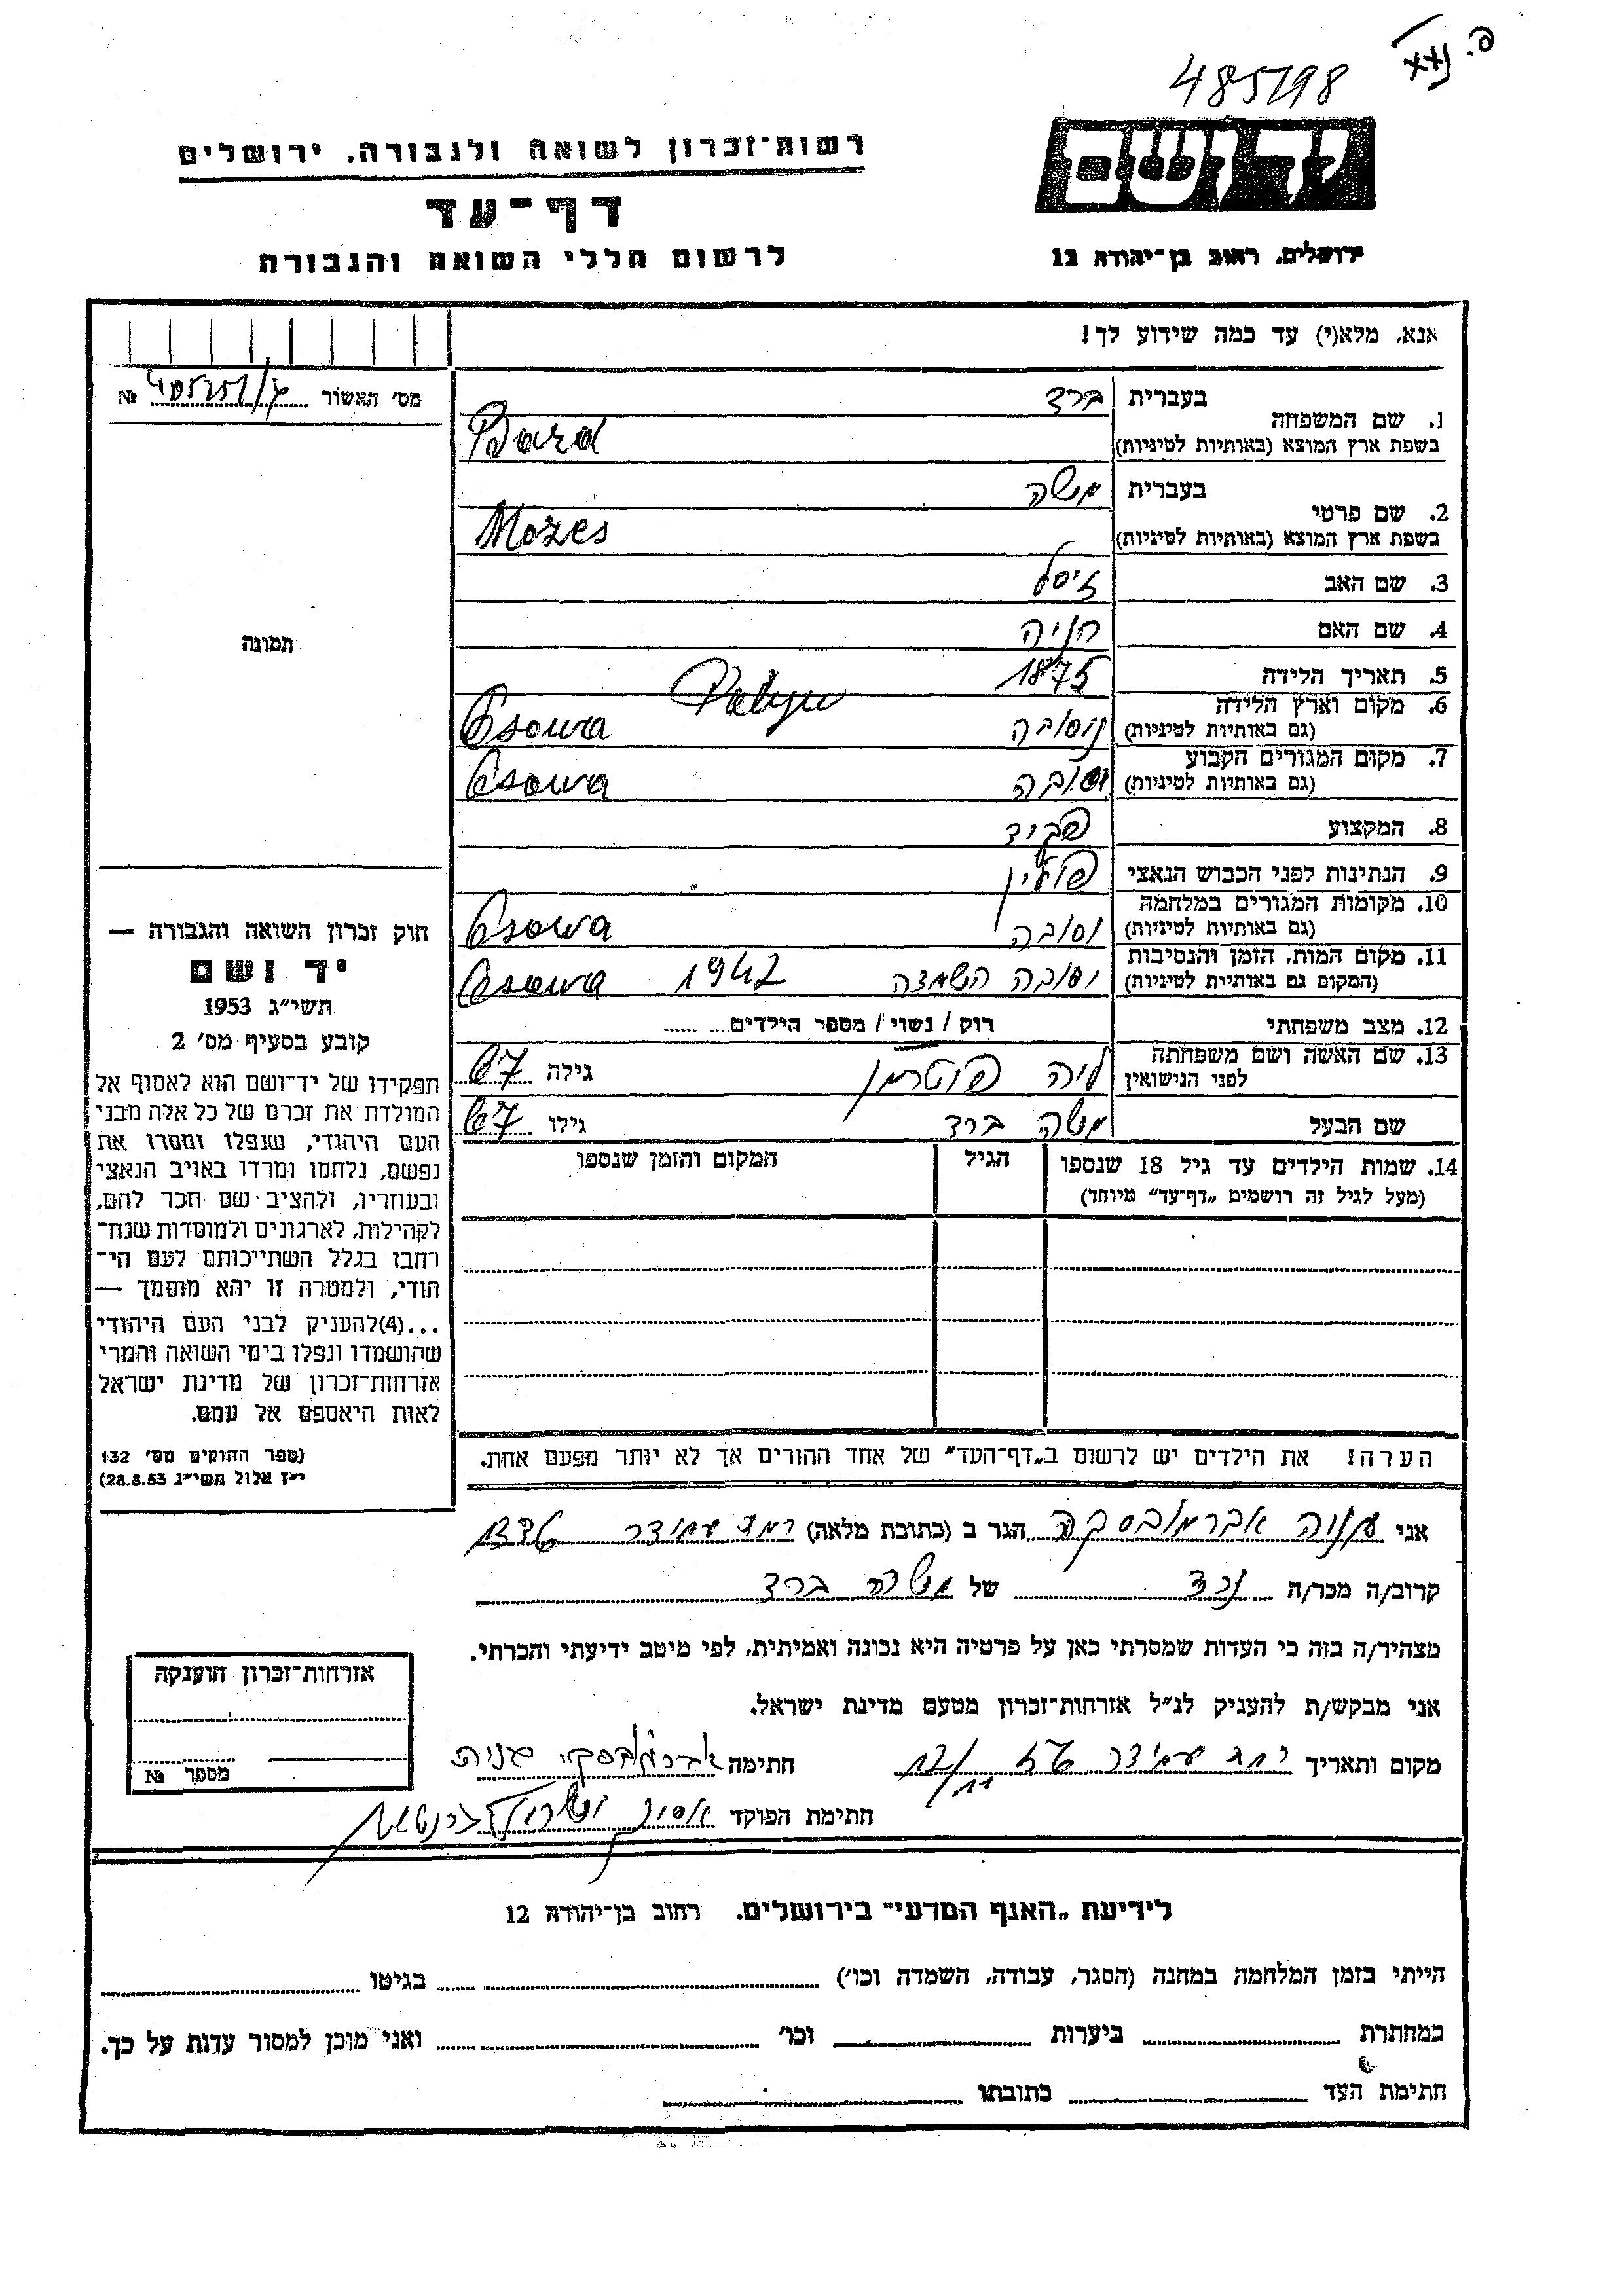 485198
יד ושם
רשות-זכרון לשואה ולגבורה, ירושלים
דף-עד
לרשום חללי השואה והגבורה
ירושלים, רחוב בן-יהודה 12
אנא, מלא(י) עד כמה שידוע לך!
מס' האשור № 
1. שם המשפחה
בעברית ברד
בשפת ארץ המוצא (באותיות לטיניות) Bard
2. שם פרטי
בעברית משה
בשפת ארץ המוצא (באותיות לטיניות) Mozes
3. שם האב זיסל
4. שם האם חניה
5. תאריך הלידה 1875
6. מקום וארץ הלידה
(גם באותיות לטיניות) Osowa
7. מקום המגורים הקבוע
(גם באותיות לטיניות) Osowa
8. המקצוע
9. הנתינות לפני הכבוש הנאצי פולין
10. מקומות המגורים במלחמה
(גם באותיות לטיניות) וסובה Osowa
11. מקום המות, הזמן והנסיבות
(המקום גם באותיות לטיניות) וסובה השמדה 1942 Osowa
12. מצב משפחתי רוק / נשוי / מספר הילדים
13. שם האשה ושם משפחתה
לפני הנישואין גילה 67
שם הבעל משה ברד גילו 67
14. שמות הילדים עד גיל 18 שנספו הגיל המקום והזמן שנספו
(מעל לגיל זה רושמים "דף-עד" מיוחד)
הערה! את הילדים יש לרשום ב"דף-העד" של אחד ההורים אך לא יותר מפעם אחת.
תמונה
חוק זכרון השואה והגבורה —
יד ושם
תשי"ג 1953
קובע בסעיף מס' 2
תפקידו של יד-ושם הוא לאסוף אל
המולדת את זכרם של כל אלה מבני
העם היהודי, שנפלו ומסרו את
נפשם, נלחמו ומרדו באויב הנאצי
ובעוזריו, ולהציב שם וזכר להם,
לקהילות, לארגונים ולמוסדות שנח-
רחבו בגלל השתייכותם לעם הי-
הודי, ולמטרה זו יהא מוסמך —
...(4)להעניק לבני העם היהודי
שהושמדו ונפלו בימי השואה והמרי
אזרחות-זכרון של מדינת ישראל
לאות היאספם אל עמם.
(ספר החוקים מס' 132
י"ז אלול תשי"ג 28.8.53)
אני אברמובסקי הגר ב (כתובת מלאה) רמת עמידר
קרוב/ה מכר/ה נכד של משה ברד
מצהיר/ה בזה כי העדות שמסרתי כאן על פרטיה היא נכונה ואמיתית, לפי מיטב ידיעתי והכרתי.
אני מבקש/ת להעניק לנ"ל אזרחות-זכרון מטעם מדינת ישראל.
מקום ותאריך רמת עמידר חתימה אברמובסקי
חתימת הפוקד
אזרחות-זכרון הוענקה
מספר №
לידיעת "האגף המדעי" בירושלים, רחוב בן-יהודה 12
הייתי בזמן המלחמה במחנה (הסגר, עבודה, השמדה וכו') בגיטו
במחתרת ביערות וכו' ואני מוכן למסור עדות על כך.
חתימת העד כתובתו